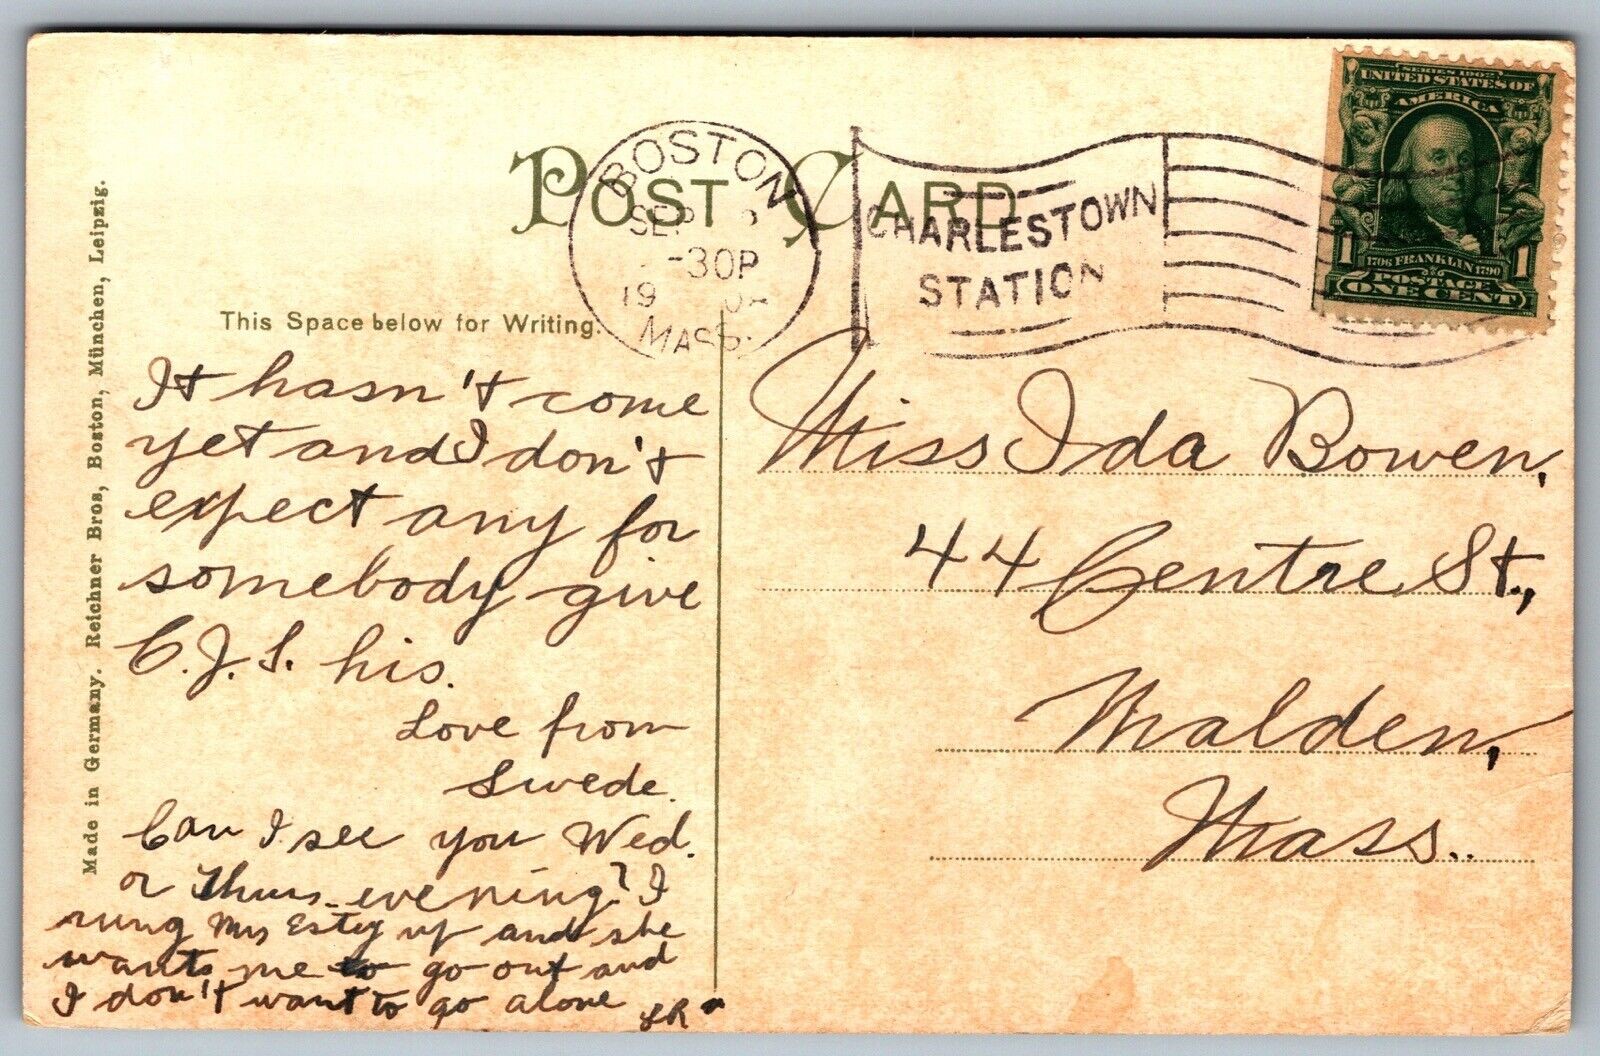 Made in Germany. Reichner Bros, Boston, München, Leipzig.
POST CARD
BOSTON
SEP
-30P
19
MASS.
CHARLESTOWN
STATION
SERIES 1902
UNITED STATES OF
AMERICA
1706 FRANKLIN 1790
1 1
POSTAGE
ONE CENT
This Space below for Writing.
It hasn't come
yet and I don't
expect any for
somebody give
C.J.S. his.
Love from
Swede.
Can I see you Wed.
or Thurs. evening? I
rung Mrs Estey up and she
wants me to go out and
I don't want to go alone
Miss Ida Bowen,
44 Centre St.,
Malden,
Mass..